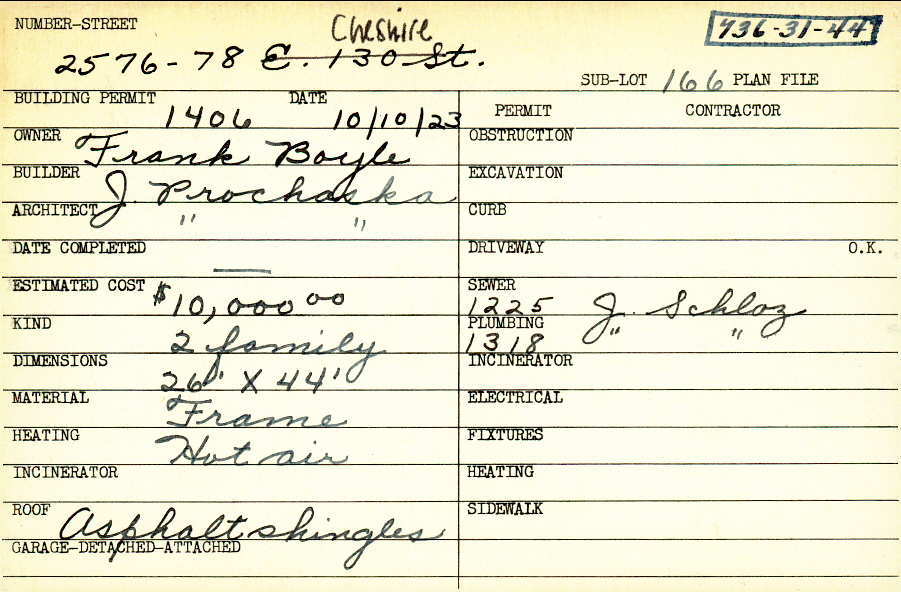 NUMBER-STREET Cheshire 736-31-44
2576-78 E. 130 St.
SUB-LOT 166 PLAN FILE
BUILDING PERMIT 1406 DATE 10/10/23
PERMIT CONTRACTOR
OWNER Frank Boyle
OBSTRUCTION
BUILDER J. Prochaska
EXCAVATION
ARCHITECT " "
CURB
DATE COMPLETED —
DRIVEWAY O.K.
ESTIMATED COST $10,000 00
SEWER 1225 J. Schloz
KIND 2 family
PLUMBING 1318 " "
DIMENSIONS 26' X 44'
INCINERATOR
MATERIAL Frame
ELECTRICAL
HEATING Hot air
FIXTURES
INCINERATOR
HEATING
ROOF Asphalt shingles
SIDEWALK
GARAGE-DETACHED-ATTACHED